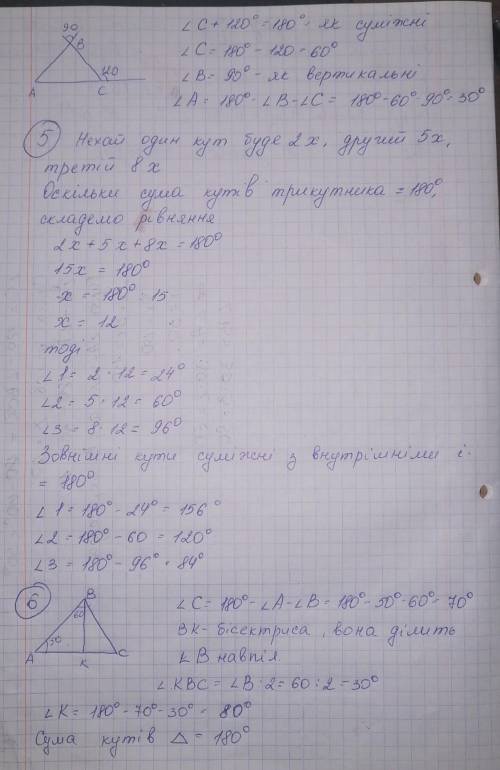 90
B
120
A
C
∠C + 120° = 180° - як суміжні
∠C = 180° - 120 = 60°
∠B = 90° - як вертикальні
∠A = 180° - ∠B - ∠C = 180° - 60° - 90° = 30°
5 Нехай один кут буде 2x, другий 5x,
третій 8x
Оскільки сума кутів трикутника = 180°,
складемо рівняння
2x + 5x + 8x = 180°
15x = 180°
x = 180° : 15
x = 12
тоді
∠1 = 2 · 12 = 24°
∠2 = 5 · 12 = 60°
∠3 = 8 · 12 = 96°
Зовнішні кути суміжні з внутрішніми і
= 180°
∠1 = 180° - 24° = 156°
∠2 = 180° - 60 = 120°
∠3 = 180° - 96° = 84°
6
B
60
50
A
K
C
∠C = 180° - ∠A - ∠B = 180° - 50° - 60° = 70°
BK - бісектриса, вона ділить
∠B навпіл
∠KBC = ∠B : 2 = 60 : 2 = 30°
∠K = 180° - 70° - 30° = 80°
Сума кутів △ = 180°